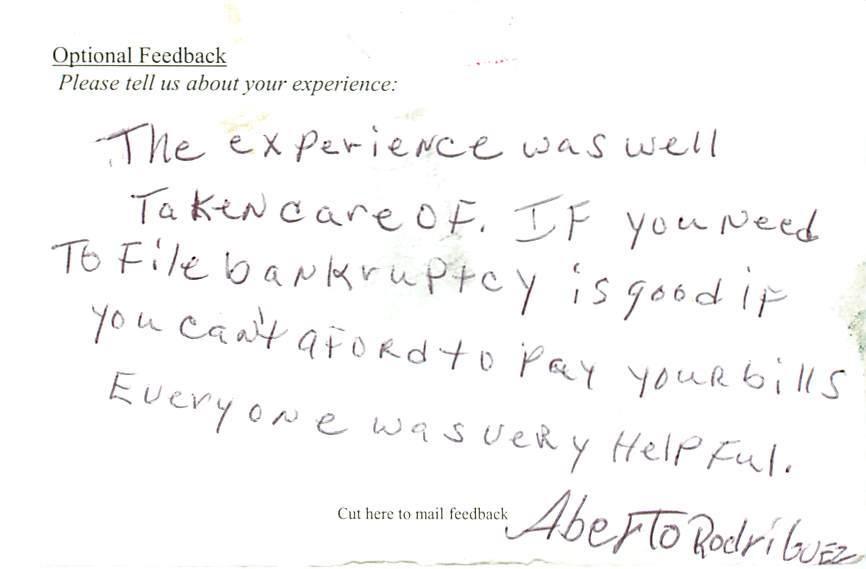 Optional Feedback
Please tell us about your experience:
The experience was well
Taken care of. If you need
To File bankruptcy is good if
you can't aford to pay your bills
Everyone was very Helpful.
Cut here to mail feedback
Aberto Rodriguez